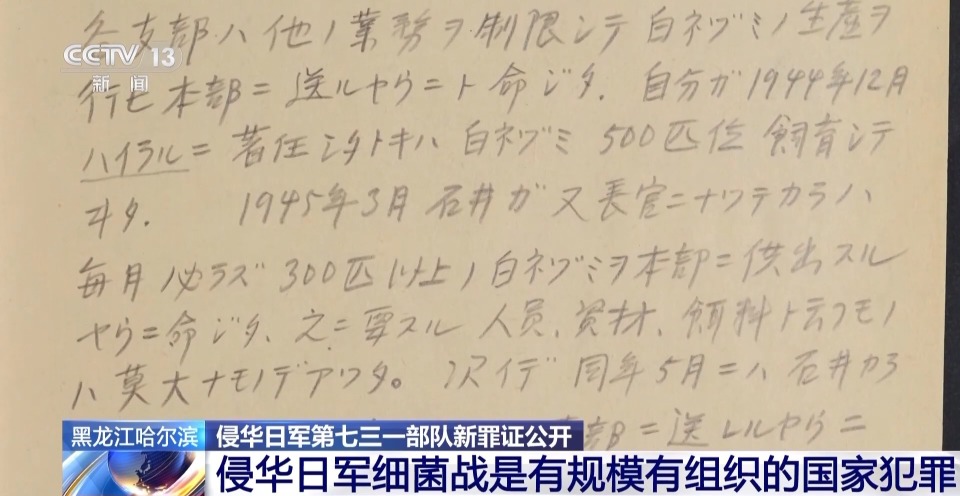 各支部ハ他ノ業務ヲ制限シテ白ネヅミノ生産ヲ
CCTV 13
新闻
行ヒ本部ニ送ルヤウニト命ジタ. 自分ガ1944年12月
ハイラルニ着任シタトキハ白ネヅミ500匹位飼育シテ
ヰタ. 1945年3月石井ガ又長官ニナツテカラハ
毎月必ラズ300匹以上ノ白ネヅミヲ本部ニ供出スル
ヤウニ命ジタ、之ニ要スル人員、資材、飼料ト云フモノ
ハ莫大ナモノデアツタ。次イデ同年5月ニハ石井カラ
部ニ送レルヤウニ
黑龙江哈尔滨
侵华日军第七三一部队新罪证公开
侵华日军细菌战是有规模有组织的国家犯罪